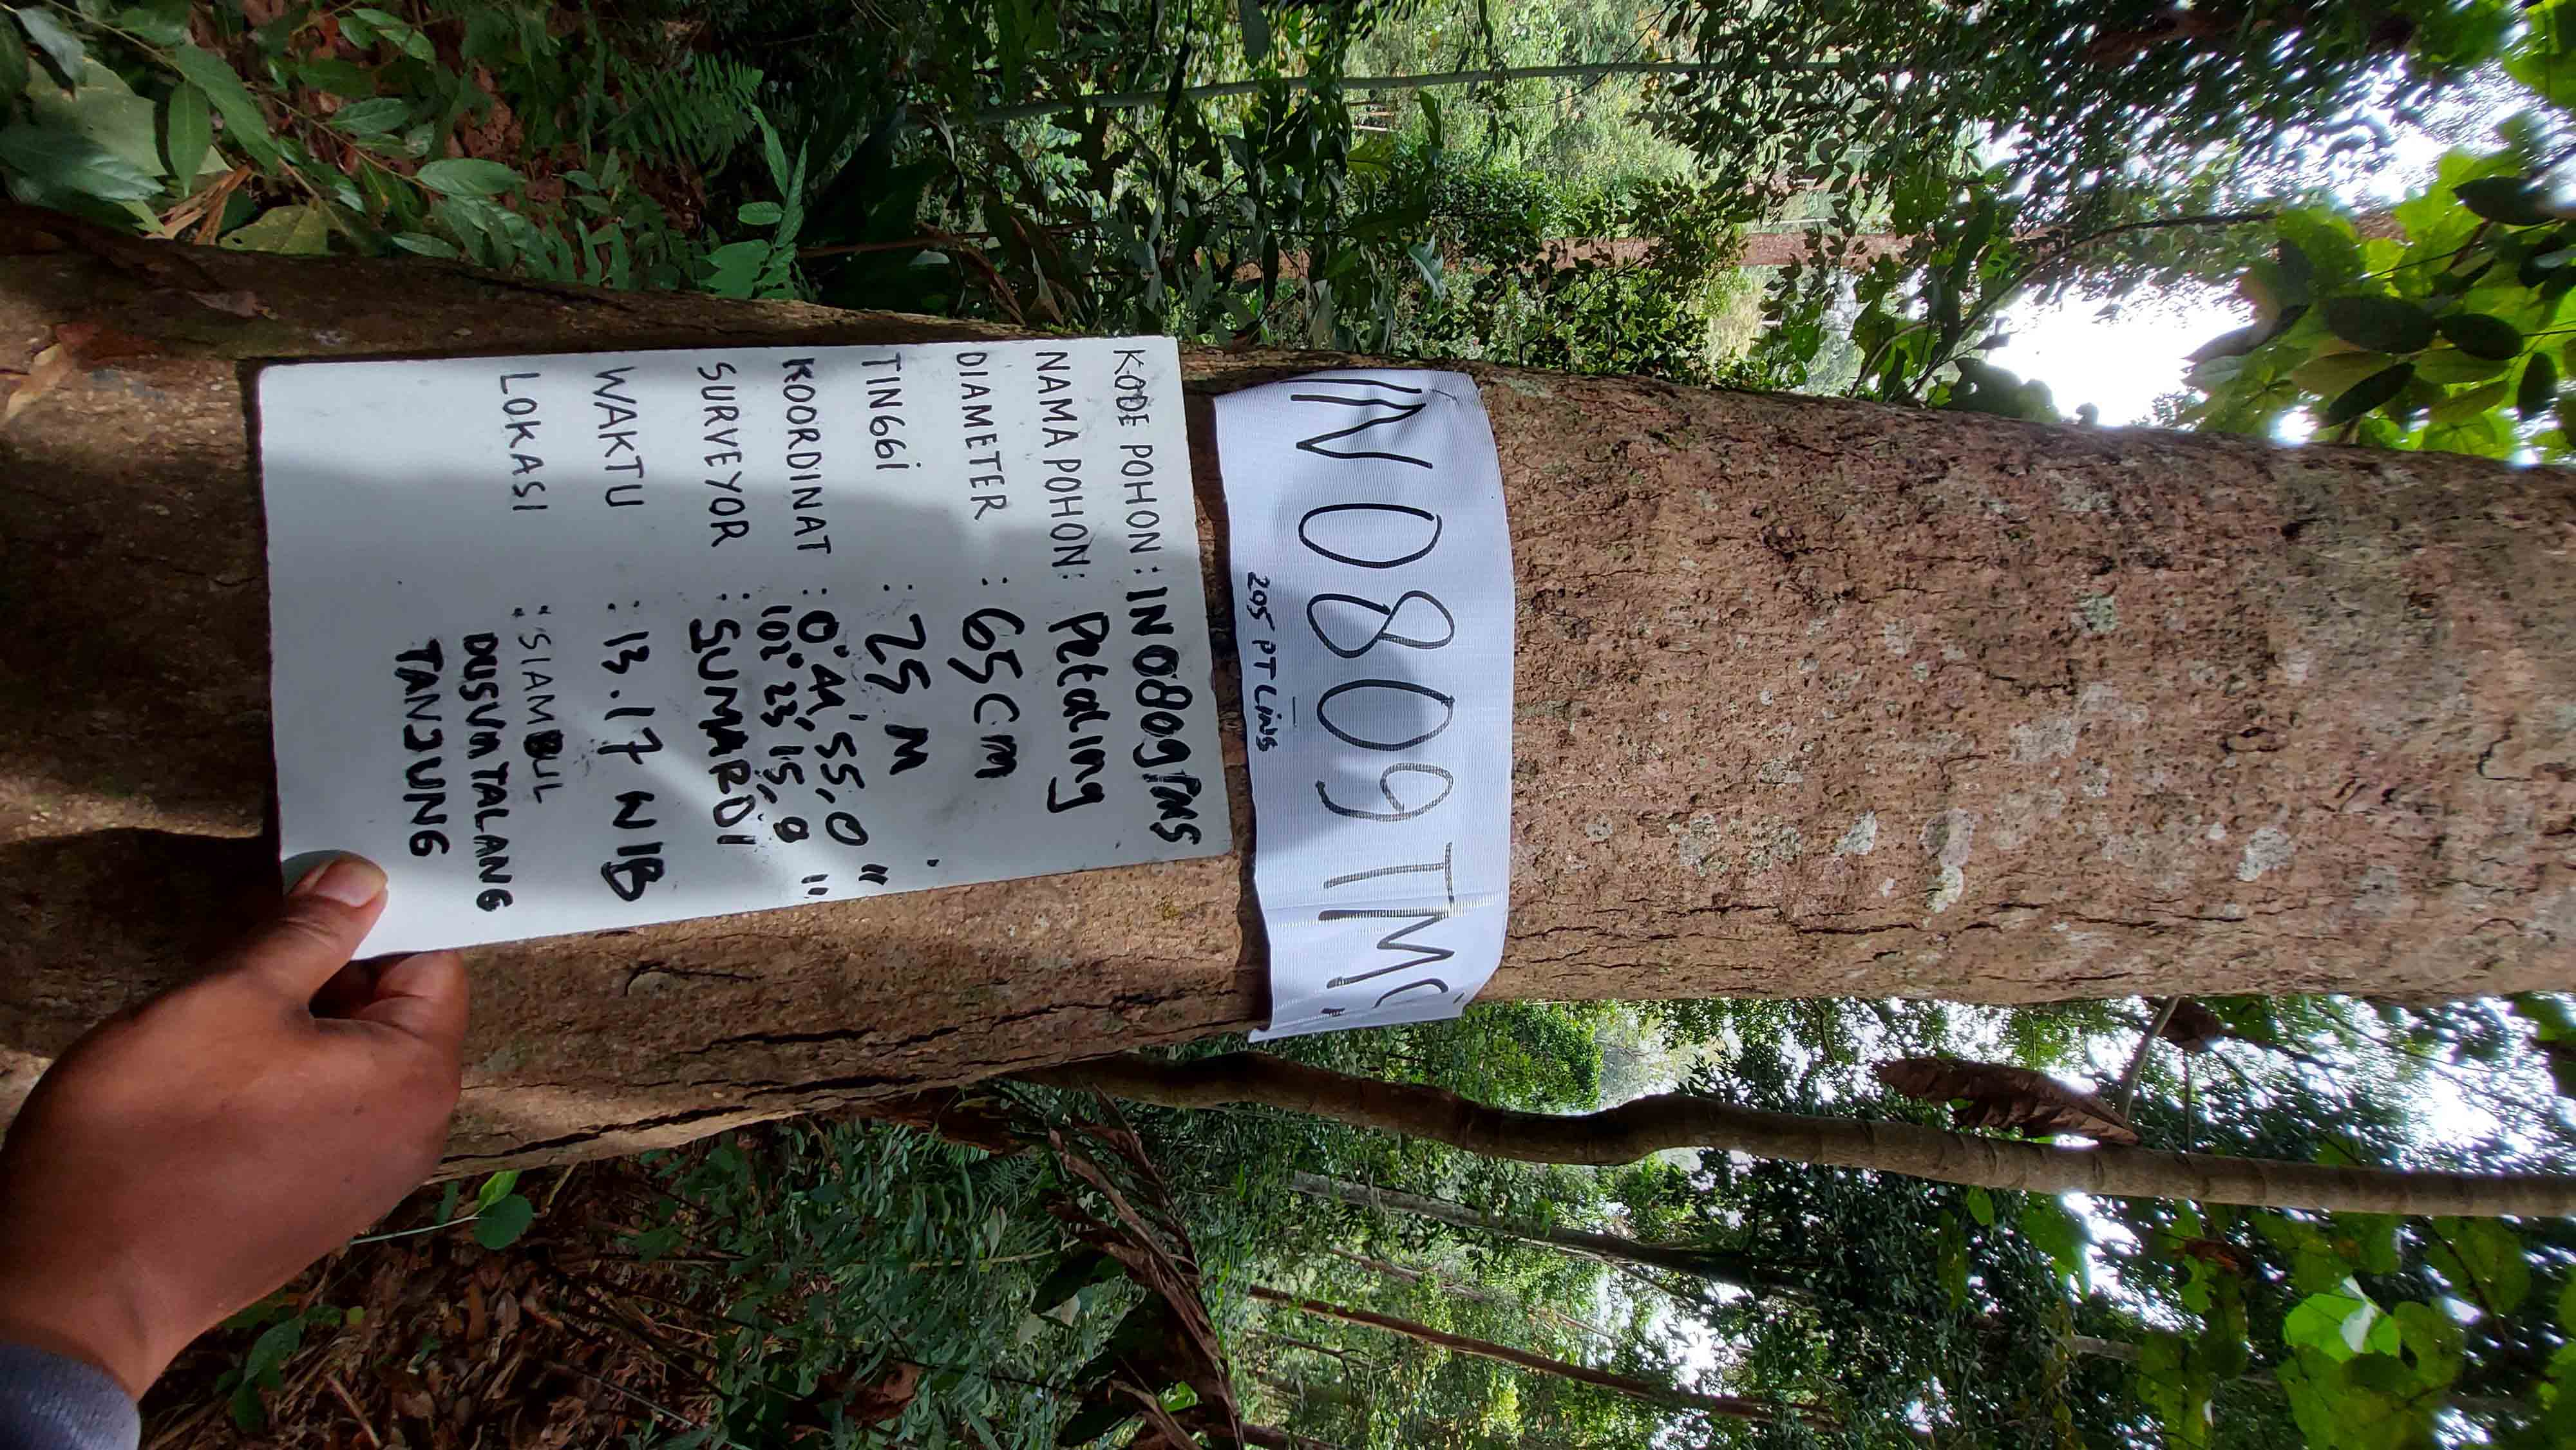 IN0809TMS
205 PT LiNG
KODE POHON : IN0809TMS
NAMA POHON : Petaling
DIAMETER : 65 CM
TINGGi : 25 M
KOORDINAT : 0° 44' 55,0"
102° 23' 15,8"
SURVEYOR : SUMARDI
WAKTU : 13.17 WIB
LOKASI : SIAMBUL
DUSUN TALANG
TANJUNG